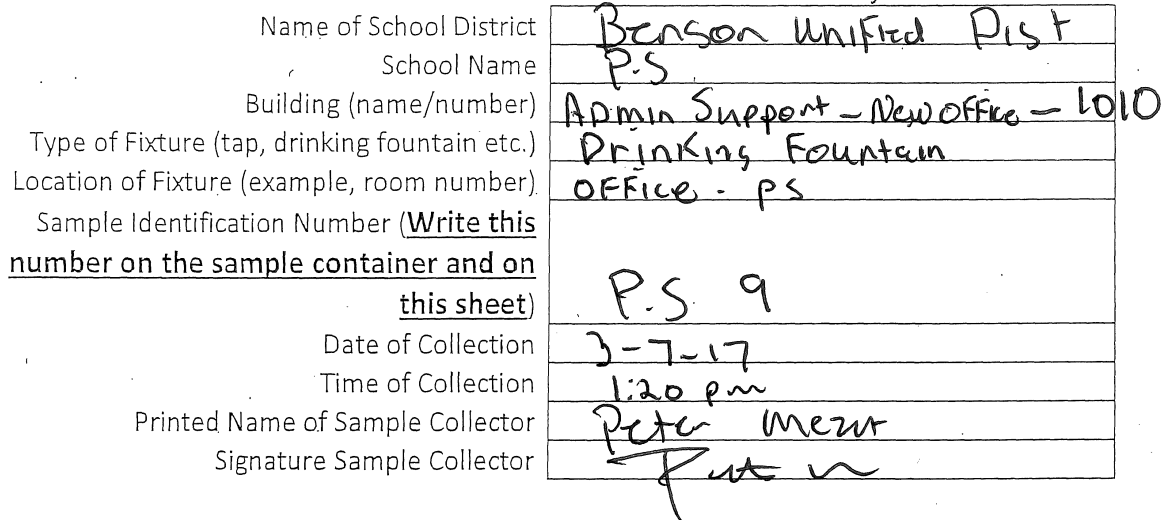 Name of School District Benson Unified Dist
School Name P.S
Building (name/number) Admin Support - New Office - 1010
Type of Fixture (tap, drinking fountain etc.) Drinking Fountain
Location of Fixture (example, room number) OFFice - PS
Sample Identification Number (Write this
number on the sample container and on
this sheet) P.S 9
Date of Collection 3-7-17
Time of Collection 1:20 pm
Printed Name of Sample Collector Peter
Signature Sample Collector